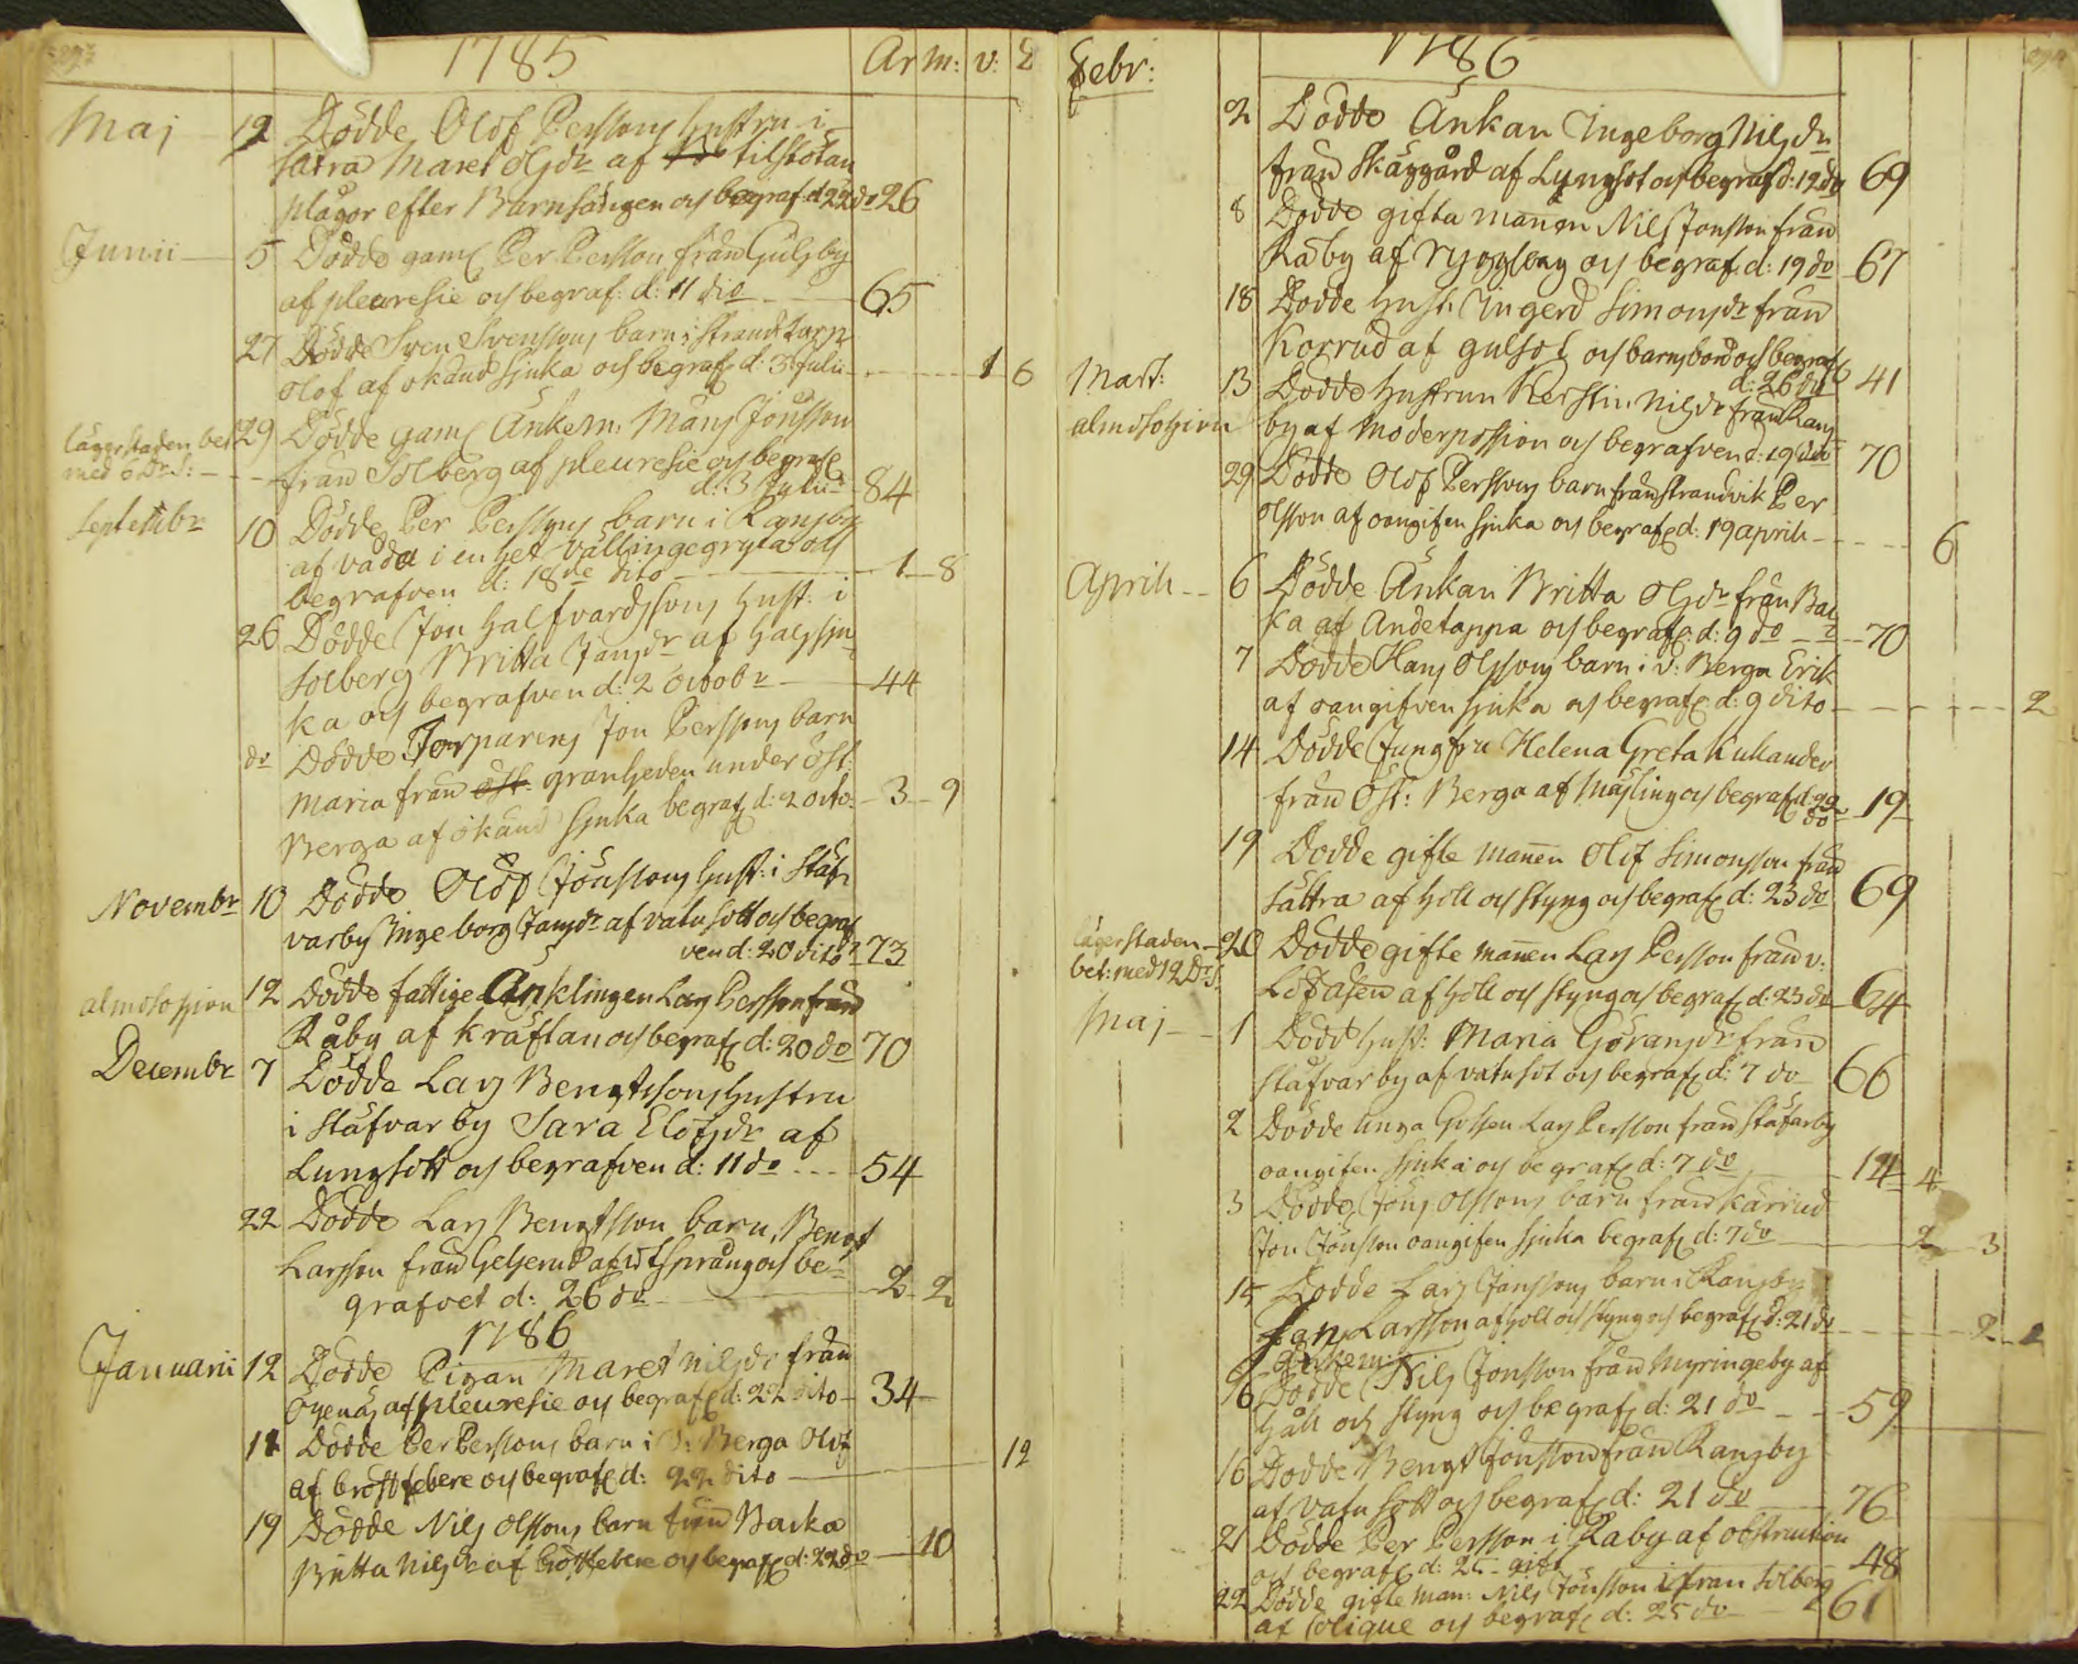 1785 Ar m: v: d
Maj 12 Dödde Olof Perssons hustru i
Sätra Maret Olsdr af tilstötan
plågor efter Barnsängen och begraf d 22 do 26
Junii 5 Dödde gaml Per Persson från Gulsby
af pleuresie och begraf: d: 11 dio 65
27 Dödde Sven Svenssons barn i Strand torp
Olof af okänd sjuka och begraf d: 3 Julii 1 6
lägerstaden bet 29 Dödde gaml Änkem: Måns Jönsson
med 6 Dr S: från Solberg af pleuresie och begraf
d: 3 Julii 84
Septembr 10 Dödde Per Perssons barn i Ransby
af våda i en het vällingegryta och
begrafven d: 18de dito 1 8
26 Dödde Jon Halfvardssons hust: i
Solberg Britta Jansdr af halssju
ka och begrafven d: 2 Octobr 44
do Dödde Torparens Jon Perssons barn
Maria från öst: granheden under öst:
Berga af okänd sjuka begraf d: 2 octo: 3 9
Novembr 10 Dödde Olof Jönssons hust: i Staf
varby Ingeborg Jansdr af vatusott och begraf
ven d: 20 dito 73
almosohjon 12 Dödde fattige Änklingen Lars Persson från
Råby af kräftan och begraf d: 20 do 70
Decembr 7 Dödde Lars Bengtssons hustru
i Stafvarby Sara Elofsdr af
Lungsott och begrafven d: 11 do 54
22 Dödde Lars Bengtsson barn, Bengt
Larsson från Geljerud af utsprång och be=
grafvet d: 26 do 2 2
1786
Januarii 12 Dödde Pigan Maret Nilsdr från
Öyenäs af pleuresie och begraf d: 22 dito 34
11 Dödde Per Perssons barn i V: Berga Olof
af bröstfebere och begraf d: 22 dito 12
19 Dödde Nils Olssons barn från Backa
Britta Nilsdr af bröstfebere och begraf d: 22 do 10
1786
Febr:
2 Dödde Änkan Ingeborg Nilsdr
från Skäggård af Lungsot och begraf d: 12 do 69
8 Dödde gifta mannen Nils Jonsson från
Råby af ryggverg och begraf d: 19 do 67
18 Dödde hust. Ingerd Simonsdr från
Korrud af gulsot och barnsbörd och begraf
d: 26 do 41
Mart: 13 Dödde hustrun Kerstin Nilsdr från Rans
almosohjon by af Moderpassion och begrafven d: 19 do 70
29 Dödde Olof Perssons barn från Strandvik Per
Olsson af oangifen sjuka och begraf d: 19 aprili 6
Aprili 6 Dödde Änkan Britta Olsdr från Bac
ka af Andetäppa och begraf d: 9 do 70
7 Dödde Hans Olssons barn i V: Berga Erik
af oangifven sjuka och begraf d: 9 dito 2
14 Dödde Jungfru Helena Greta Kulander
från Öst: Berga af Mäsling och begraf d: 22
do 19
19 Dödde gifte mannen Olof Simonsson från
Sättra af håll och styng och begraf d: 23 do 69
lägerstaden 20 Dödde gifte mannen Lars Persson från v:
bet: med 12 Dr S. Löfåsen af håll och styng och begraf d: 23 do 64
Maj 1 Dödd hust: Maria Göransdr från
Stafvarby af vatusot och begraf d: 7 do 66
2 Dödde unga Gossen Lars Persson från Stafarby
oangifen sjuka och begraf d: 7 do 14 4
3 Dödde Jöns Olssons barn från Kärrud
Jon Jönsson oangifen sjuka begraf d: 7 do 2 3
15 Dödde Lars Janssons barn i Ransby
Jan Larsson af håll och styng och begraf d: 21 do 2 2
Änkem:
16 Dödde Nils Jonsson från Myringeby af
håll och styng och begraf d: 21 do 59
16 Dödde Bengt Jönsson från Ransby
af vatu sott och begraf d: 21 do 76
21 Dödde Per Persson i Råby af obstruction
och begraf d: 25 gift 48
22 Dödde gifte man: Nils Jönsson i från Solberg
af Colique och begraf d: 25 do 61